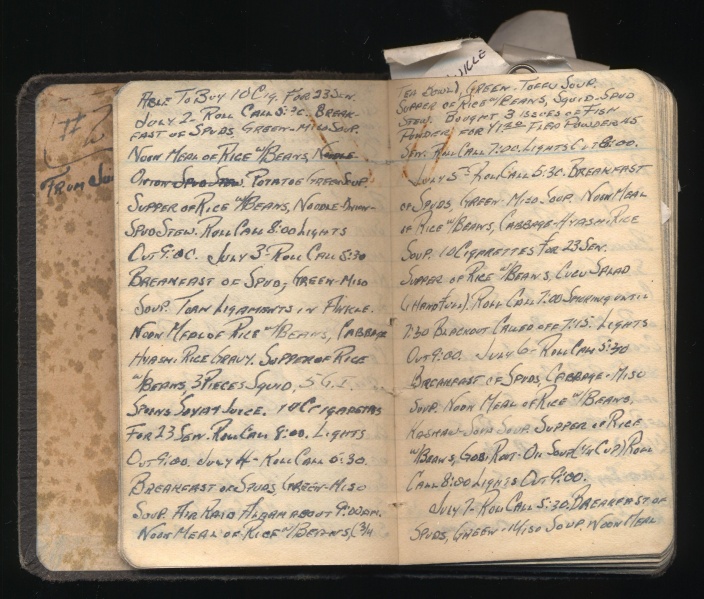 #2
From
VILLE
Able To Buy 10 Cig. For 23 Sen.
July 2- Roll Call 5:30. Break-
fast of Spuds, Green-Miso Soup.
Noon Meal of Rice w/Beans, Noodle-
Onion Spud Stew. Potatoe Green Soup.
Supper of Rice w/Beans, Noodle-Onion-
Spud Stew. Roll Call 8:00 Lights
Out 9:00. July 3- Roll Call 5:30
Breakfast of Spud, Green-Miso
Soup. Torn Ligamants in Ankle.
Noon Meal of Rice w/Beans, Cabbage
Hyashi Rice Gravy. Supper of Rice
w/Beans, 3 Pieces Squid, 5 G.I.
Spoons Soya Juice. 10 Cigarettes
For 23 Sen. Roll Call 8:00. Lights
Out 9:00. July 4- Roll Call 5:30.
Breakfast of Spuds, Green-Miso
Soup. Air Raid Alarm about 9:00 AM.
Noon Meal of Rice w/Beans, (3/4
Tea Bowl), Green-Toffu Soup.
Supper of Rice w/Beans, Squid-Spud
Stew. Bought 3 Issues of Fish
Powder, For Flea Powder
Sen. Roll Call 7:00. Lights Out 8:00.
July 5- Roll Call 5:30. Breakfast
of Spuds Green-Miso Soup. Noon Meal
of Rice w/Beans, Cabbage-Hyashi Rice
Soup. 10 Cigarettes For 23 Sen.
Supper of Rice w/Beans Cucu Salad
(Handfull). Roll Call 7:00 Until
7:30 Blackout Called off 7:15. Lights
Out 9:00. July 6- Roll Call 5:30
Breakfast of Spuds, Cabbage-Miso
Soup. Noon Meal of Rice w/Beans,
Soup. Supper of Rice
w/Beans, Gobi Root-Oil Soup (1/4 Cup) Roll
Call 8:00 Lights Out 9:00.
July 7- Roll Call 5:30. Breakfast of
Spuds, Green-Miso Soup. Noon Meal